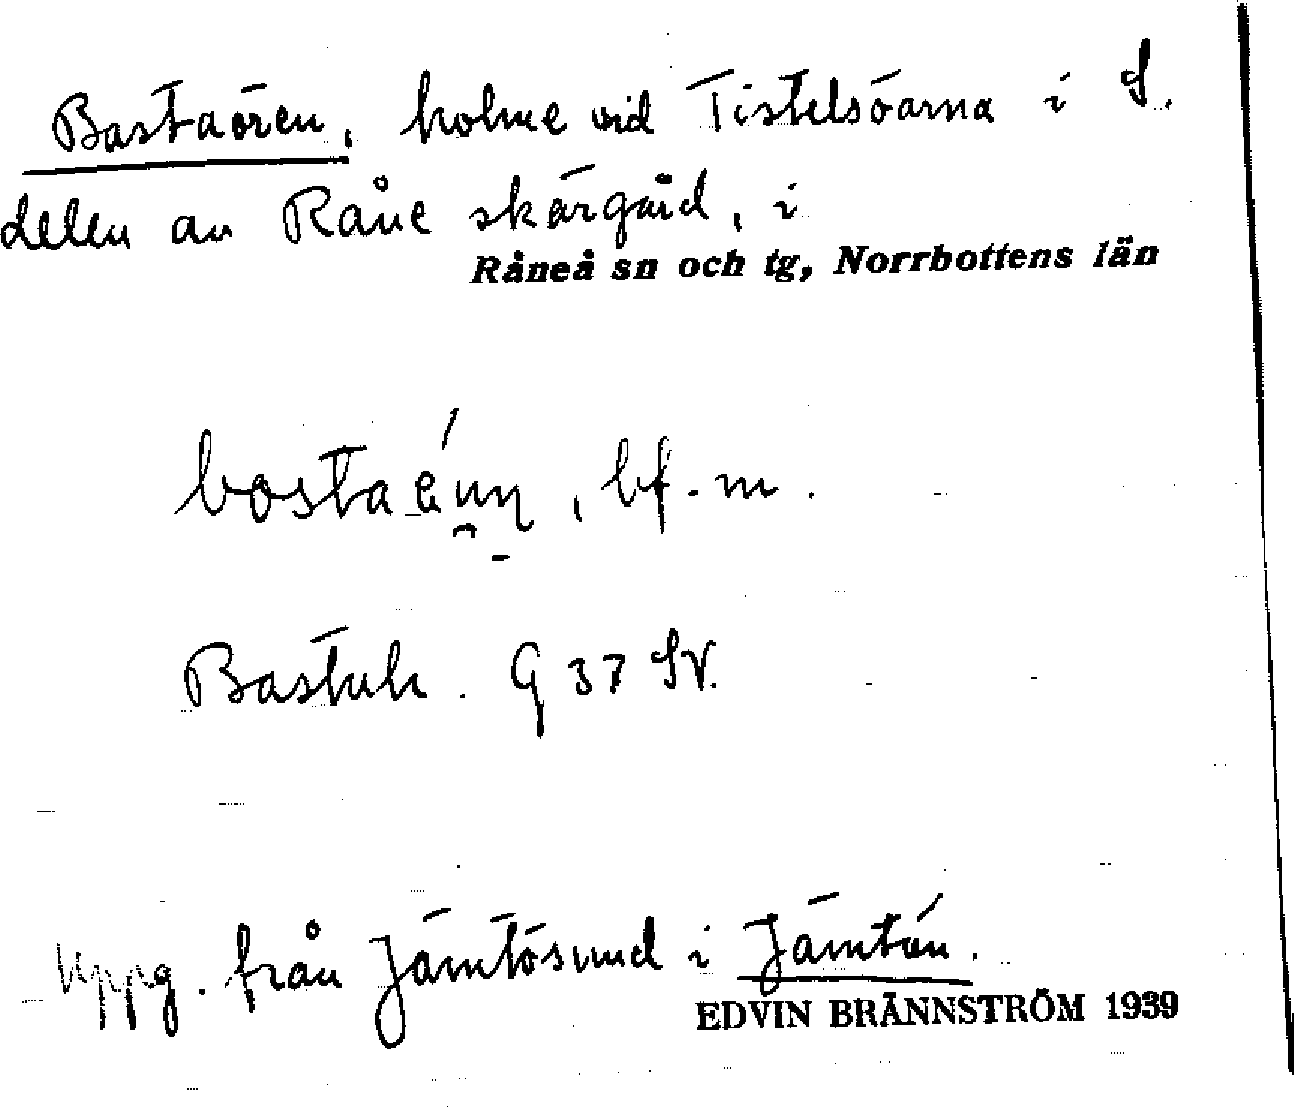 Bastaören, holme vid Tistelsöarna i S.
delen av Råne skärgård, i
Råneå sn och tg, Norrbottens län
bf. m.
Bastuh. G 37 SV.
Uppg. från Jämtösund i Jämtön.
EDVIN BRÄNNSTRÖM 1939